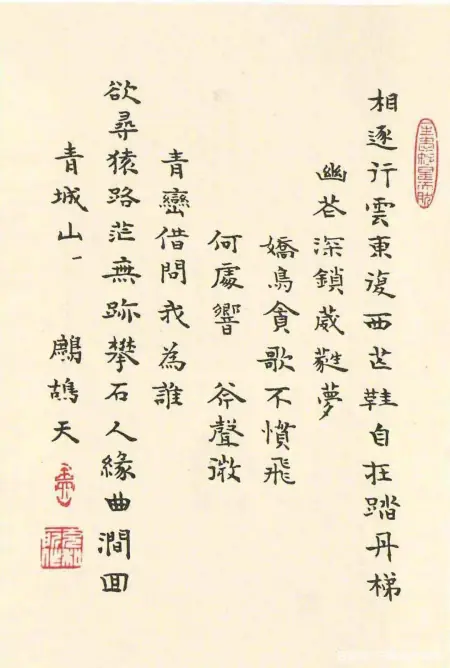 相逐行雲東復西芒鞋自在踏丹梯
幽花深鎖葳蕤夢
嬌鳥貪歌不慣飛
何處響 斧聲微
青巒借問我為誰
欲尋猿路茫無跡攀石人緣曲澗回
青城山、 鷓鴣天